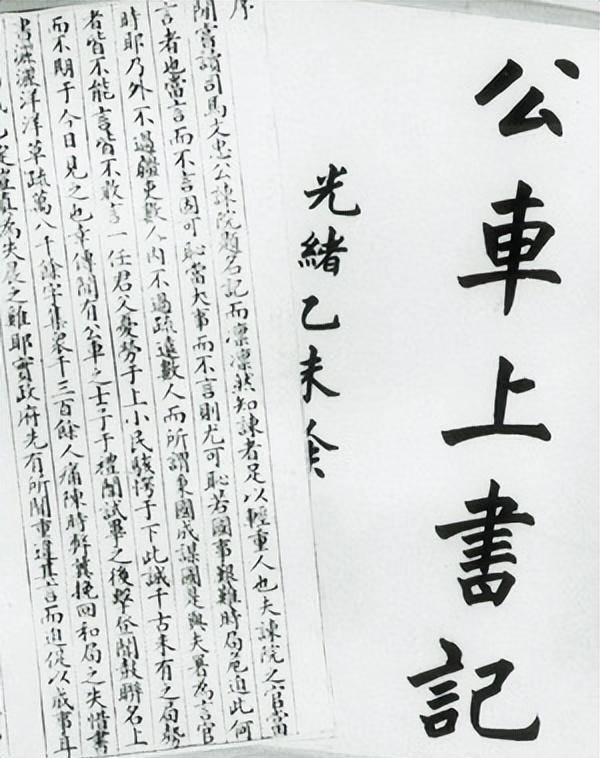 公車上書記
光緒乙未
序
聞嘗讀司馬文忠公諫院題名記而凛凛然知諫者足以輕重人也夫諫院之官當
言者也當言而不言固可恥當大事而不言則尤可恥若國事艱難時局危迫此何
時耶乃外不過疆吏數人內不過疏遠數人而所謂秉國成謀國是與夫署為言官
者皆不能言皆不敢言一任君父憂勞于上小民駭愕于下此誠千古未有之局勢
而不期于今日見之也幸傳聞有公車之士子于禮闈試畢之後擊登聞鼓聯名上
書灑灑洋洋草疏萬八千餘字集衆千三百餘人痛陳時弊冀挽回和局之失惜書
為失晨之雞耶實政府先有所聞事遑其言而迫促以成事耳